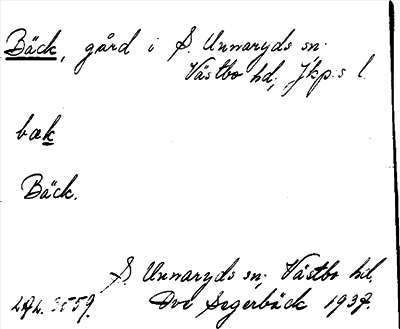 Bäck, gård i S. Unnaryds sn.
Västbo hd, Jkp:s l.
bæk
Bäck.
S. Unnaryds sn, Västbo hd,
LAL. 3559. Ove Segerbäck 1937.